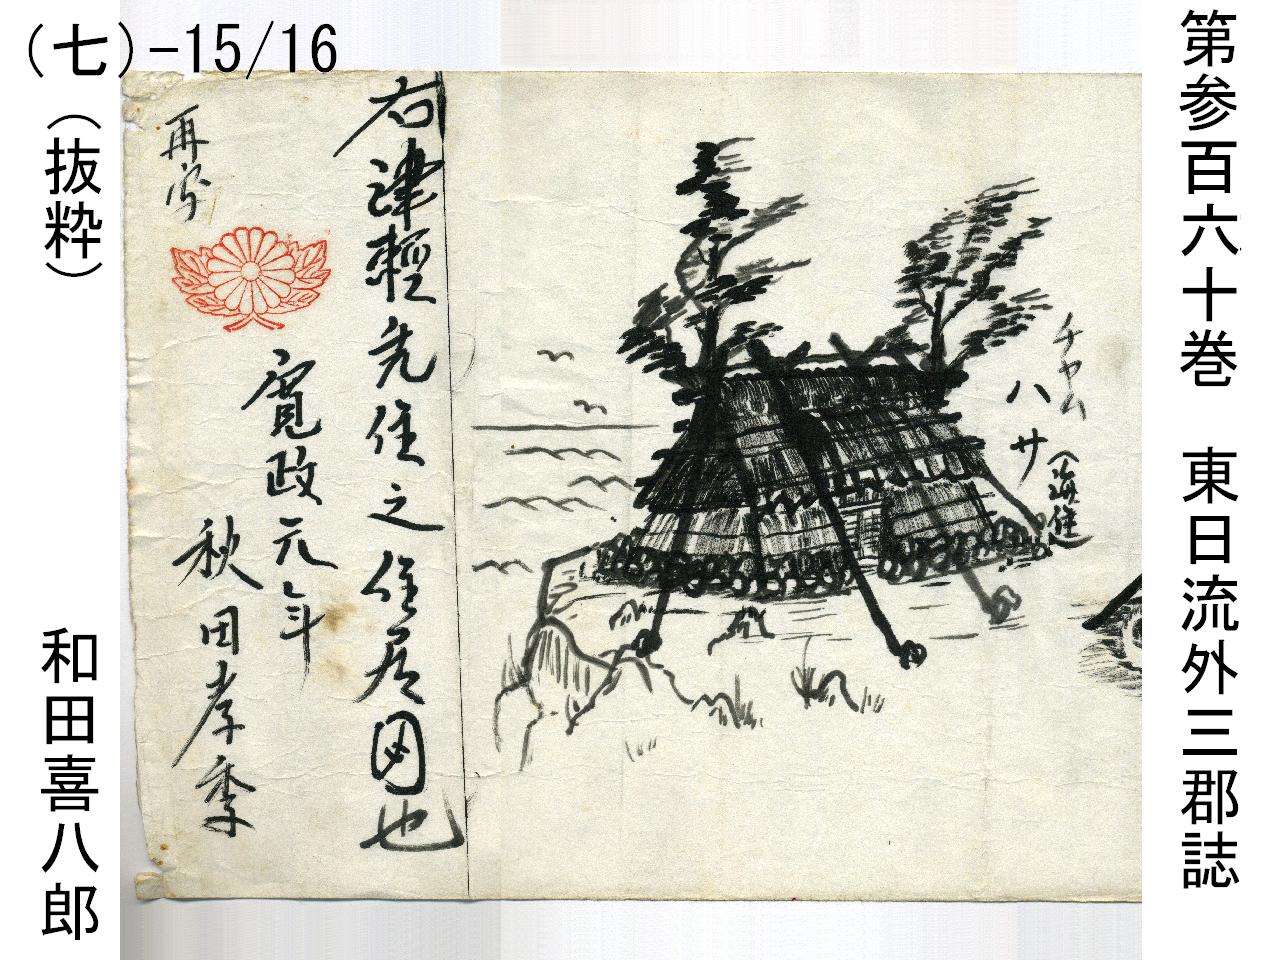 第参百六十巻 東日流外三郡誌
チャム
ハサ
(海住)
右津軽先住之住居図也
寛政元年
秋田孝季
再写
(七)-15/16
(抜粋)
和田喜八郎